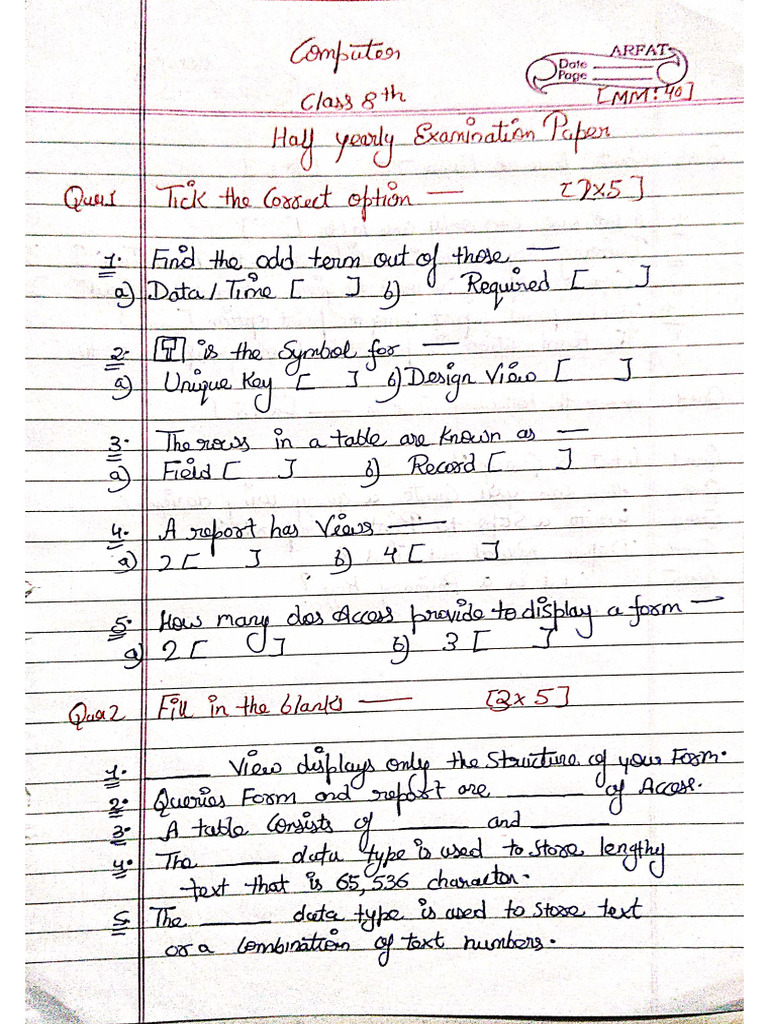 Computer
ARFAT
Date
Page
Class 8th
[MM: 40]
Half yearly Examination Paper
Ques1 Tick the Correct option — [2×5]
1. Find the odd term out of those —
a) Data / Time [ ] b) Required [ ]
2. T is the Symbol for —
a) Unique Key [ ] b) Design View [ ]
3. The rows in a table are known as —
a) Field [ ] b) Record [ ]
4. A report has Views —
a) 2 [ ] b) 4 [ ]
5. How many dos Access provide to display a form —
a) 2 [ ] b) 3 [ ]
Ques2 Fill in the blanks — [2×5]
1. ______ View displays only the Structure of your Form.
2. Queries Form and report are ______ of Access.
3. A table Consists of ______ and ______
4. The ______ data type is used to store lengthy
text that is 65,536 character.
5. The ______ data type is used to store text
or a Combination of text numbers.